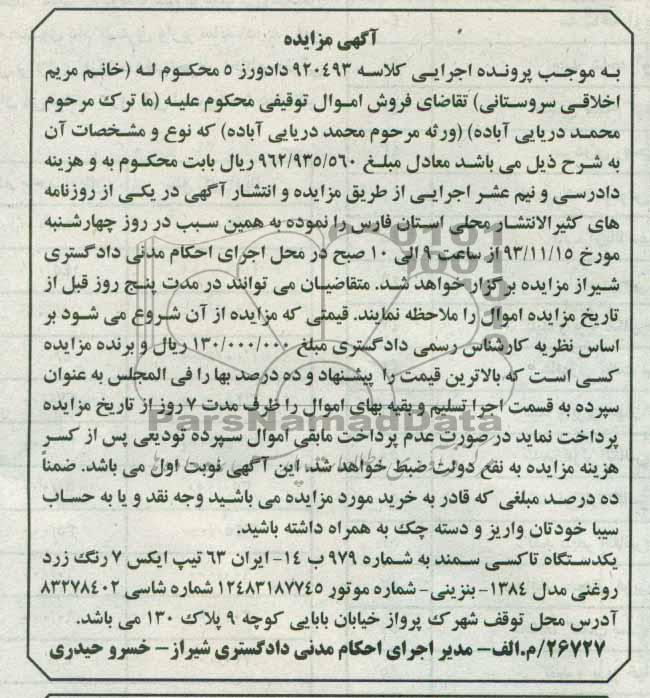 آگهی مزایده
به موجب پرونده اجرایی کلاسه ۹۲۰۴۹۳ دادورز ۵ محکوم له (خانم مریم
اخلاقی سروستانی) تقاضای فروش اموال توقیفی محکوم علیه (ما ترک مرحوم
محمد دریایی آباده) (ورثه مرحوم محمد دریایی آباده) که نوع و مشخصات آن
به شرح ذیل می باشد معادل مبلغ ۹۶۲/۹۳۵/۵۶۰ ریال بابت محکوم به و هزینه
دادرسی و نیم عشر اجرایی از طریق مزایده و انتشار آگهی در یکی از روزنامه
های کثیرالانتشار محلی استان فارس را نموده به همین سبب در روز چهارشنبه
مورخ ۹۳/۱۱/۱۵ از ساعت ۹ الی ۱۰ صبح در محل اجرای احکام مدنی دادگستری
شیراز مزایده برگزار خواهد شد. متقاضیان می توانند در مدت پنج روز قبل از
تاریخ مزایده اموال را ملاحظه نمایند. قیمتی که مزایده از آن شروع می شود بر
اساس نظریه کارشناس رسمی دادگستری مبلغ ۱۳۰/۰۰۰/۰۰۰ ریال و برنده مزایده
کسی است که بالاترین قیمت را پیشنهاد و ده درصد بها را فی المجلس به عنوان
سپرده به قسمت اجرا تسلیم و بقیه بهای اموال را ظرف مدت ۷ روز از تاریخ مزایده
ParsNamadData
پرداخت نماید در صورت عدم پرداخت مابقی اموال سپرده تودیعی پس از کسر
هزینه مزایده به نفع دولت ضبط خواهد شد. این آگهی نوبت اول می باشد. ضمناً
ده درصد مبلغی که قادر به خرید مورد مزایده می باشید وجه نقد و یا به حساب
سیبا خودتان واریز و دسته چک به همراه داشته باشید.
یکدستگاه تاکسی سمند به شماره ۹۷۹ ب ۱۴- ایران ۶۳ تیپ ایکس ۷ رنگ زرد
روغنی مدل ۱۳۸۴- بنزینی- شماره موتور ۱۲۴۸۳۱۸۷۷۴۵ شماره شاسی ۸۳۲۷۸۴۰۲
آدرس محل توقف شهرک پرواز خیابان بابایی کوچه ۹ پلاک ۱۳۰ می باشد.
۲۶۷۲۷/م.الف- مدیر اجرای احکام مدنی دادگستری شیراز- خسرو حیدری